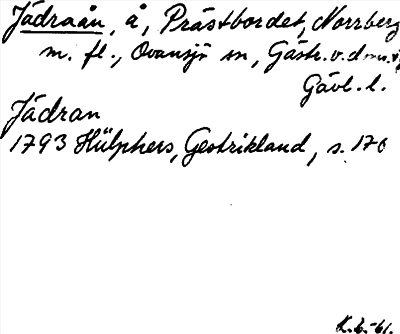 Jädraån, å, Prästbordet, Norrberg
m. fl., Ovansjö sn, Gästr. v. dms.
Gävl. l.
Jädran
1793 Hülphers, Gestrikland, s. 170
K. G-61.